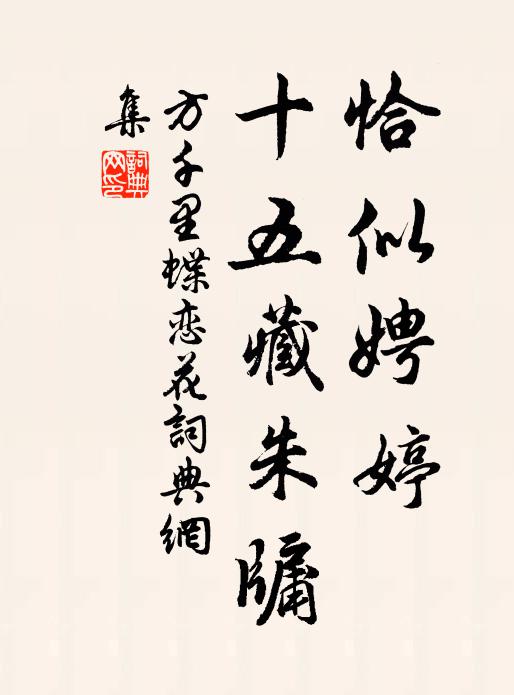 恰似娉婷
十五藏朱牖
方千里蝶恋花詞典網
集
詞典
网印